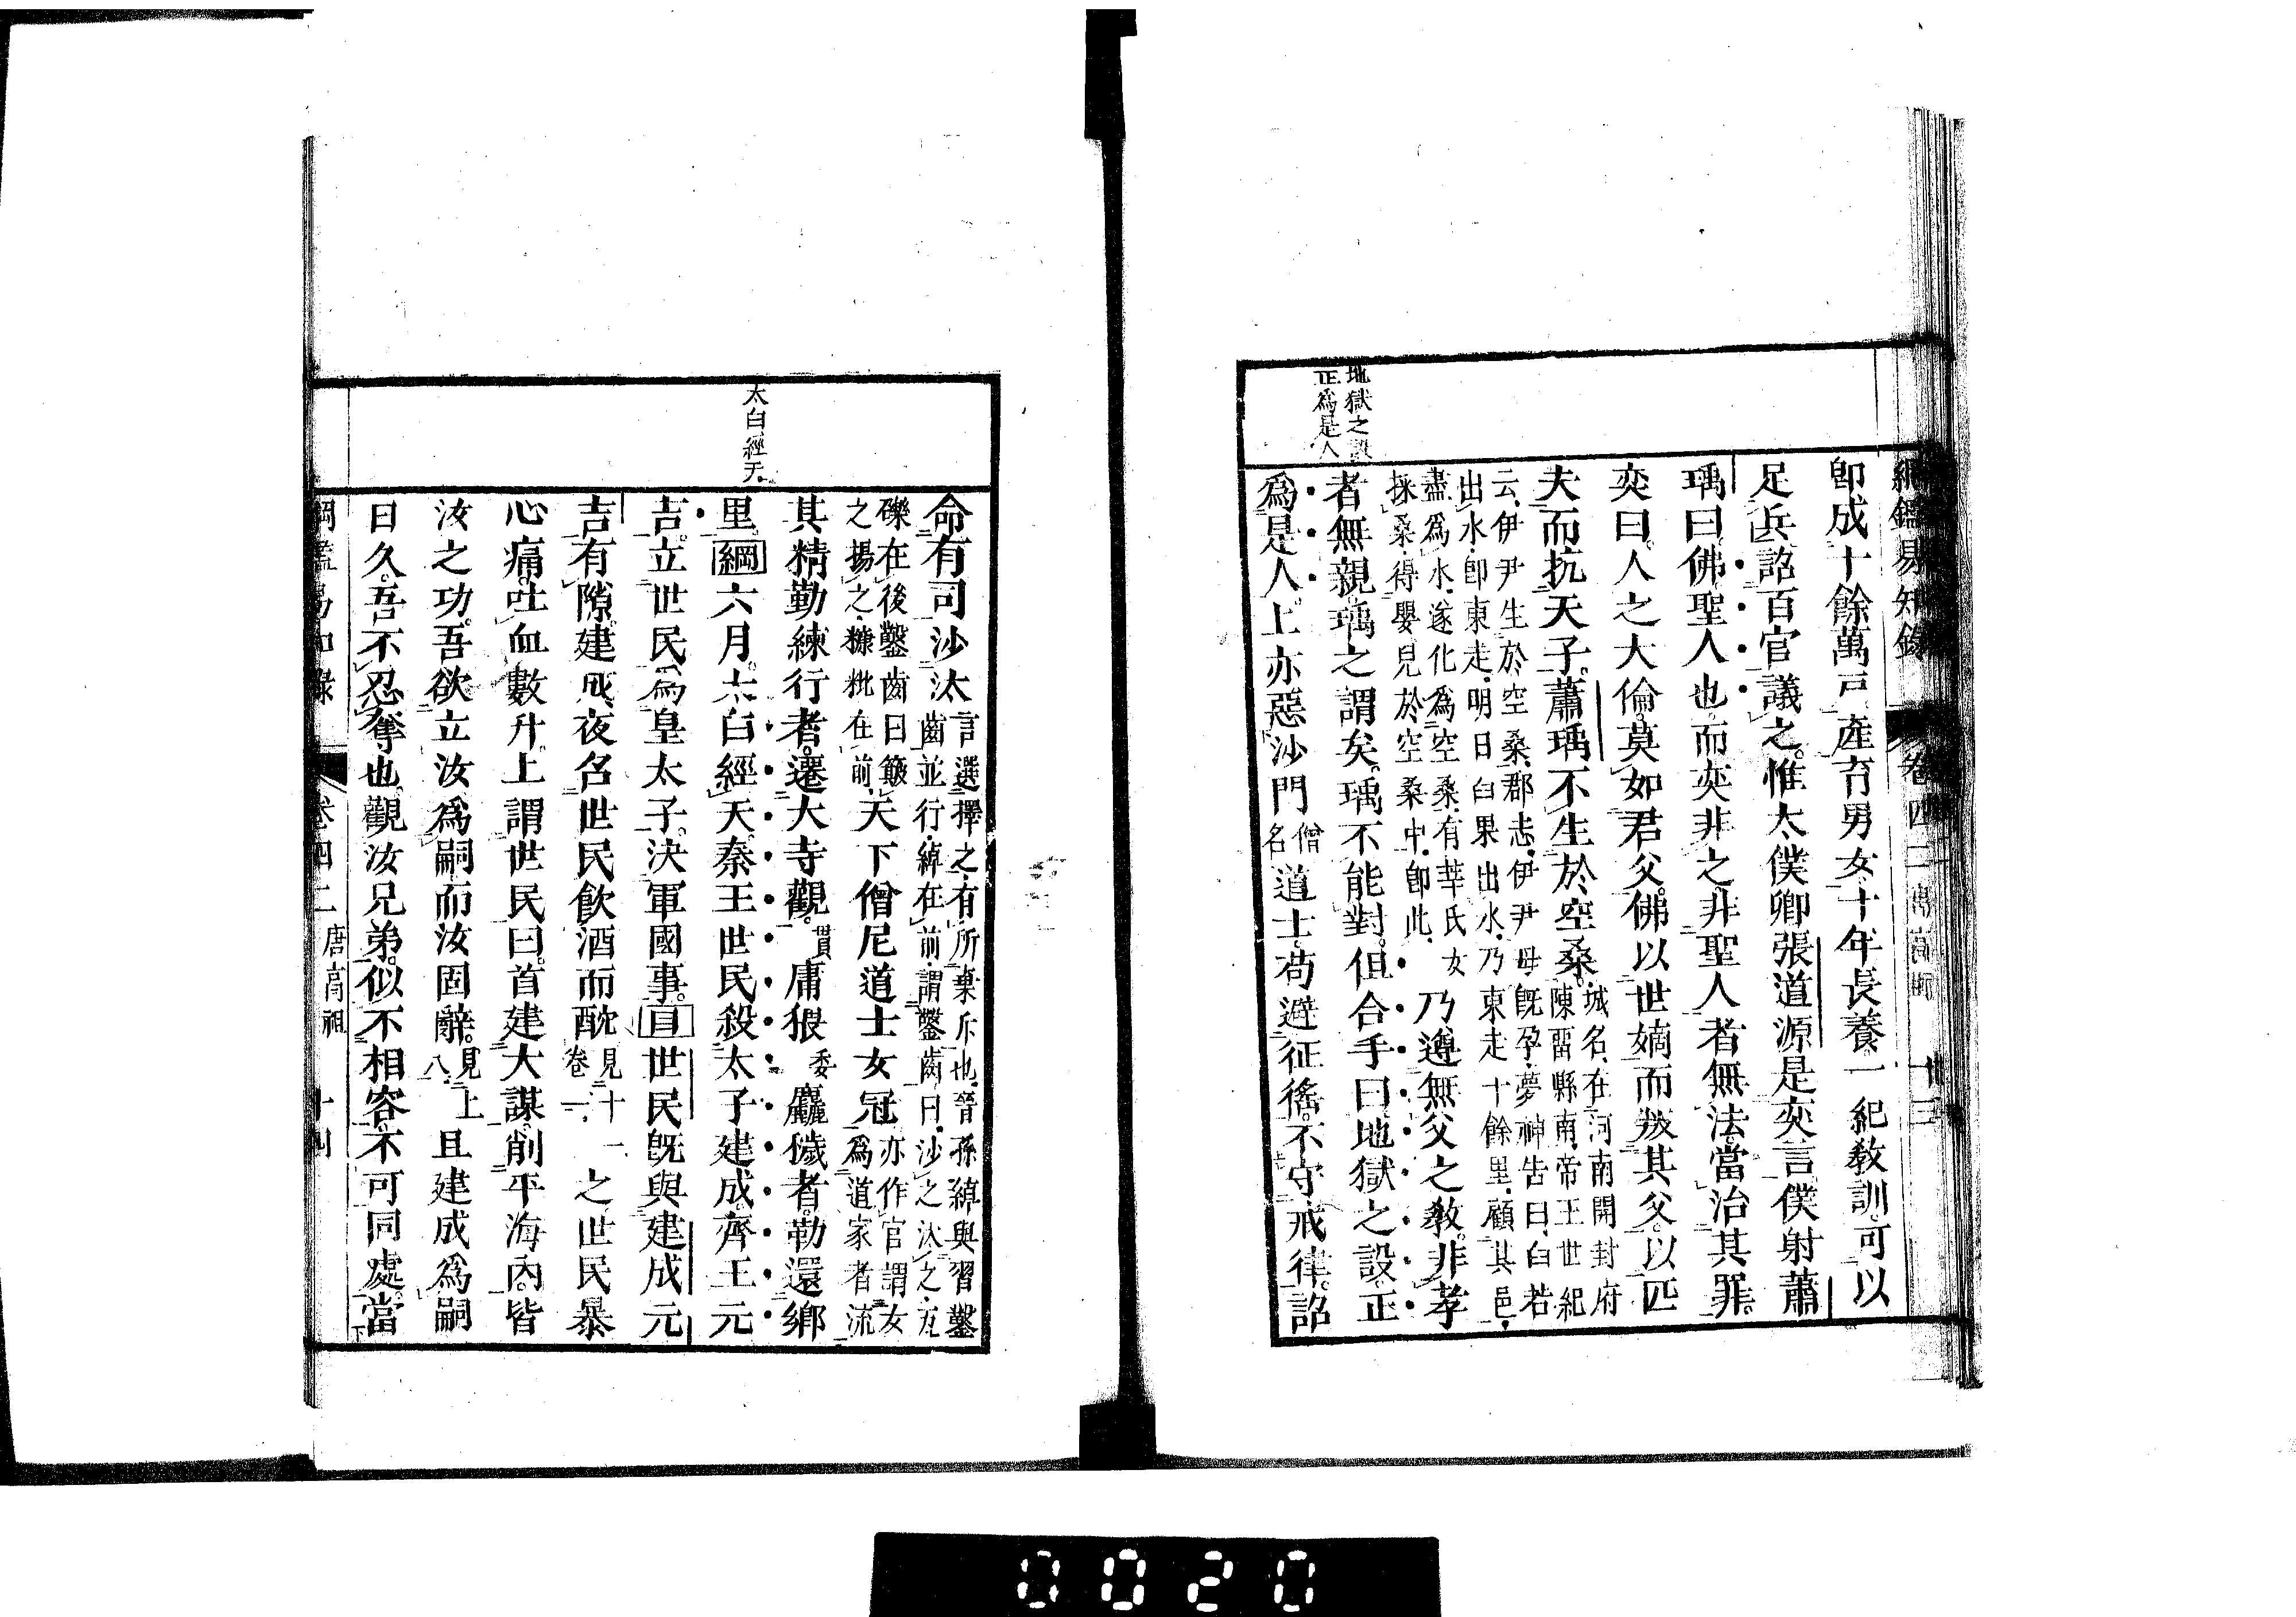 綱鑑易知錄 卷四二 唐高祖 十三
地獄之設
正爲是人
卽成十餘萬戸產育男女十年長養一紀教訓可以
足兵詔百官議之惟太僕卿張道源是奕言僕射蕭
瑀曰佛聖人也而奕非之非聖人者無法當治其罪
奕曰人之大倫莫如君父佛以世嫡而叛其父以匹
夫而抗天子蕭瑀不生於空桑城名在河南開封府
陳畱縣南帝王世紀
云伊尹生於空桑郡志伊尹母旣孕夢神告曰臼若
出水卽東走明日臼果出水乃東走十餘里顧其邑
盡爲水遂化爲空桑有莘氏女
採桑得嬰兒於空桑中卽此
乃遵無父之教非孝
者無親瑀之謂矣瑀不能對但合手曰地獄之設正
爲是人上亦惡沙門僧名道士苟避征徭不守戒律詔
太白經天
命有司沙汰言選擇之有所棄斥也晉孫綽與習鑿
齒並行綽在前謂鑿齒曰沙之汰之瓦
礫在後鑿齒曰簸
之揚之糠粃在前
天下僧尼道士女冠亦作官謂女
爲道家者流
其精勤練行者遷大寺觀貫庸猥委麤穢者勒還鄉
里綱六月太白經天秦王世民殺太子建成齊王元
吉立世民爲皇太子決軍國事目世民旣與建成元
吉有隙建成夜名世民飮酒而酖見十一
卷一
之世民暴
心痛吐血數升上謂世民曰首建大謀削平海內皆
汝之功吾欲立汝爲嗣而汝固辭見上
八
且建成爲嗣
日久吾不忍奪也觀汝兄弟似不相容不可同處當
綱鑑易知錄 卷四二 唐高祖 十四
0020